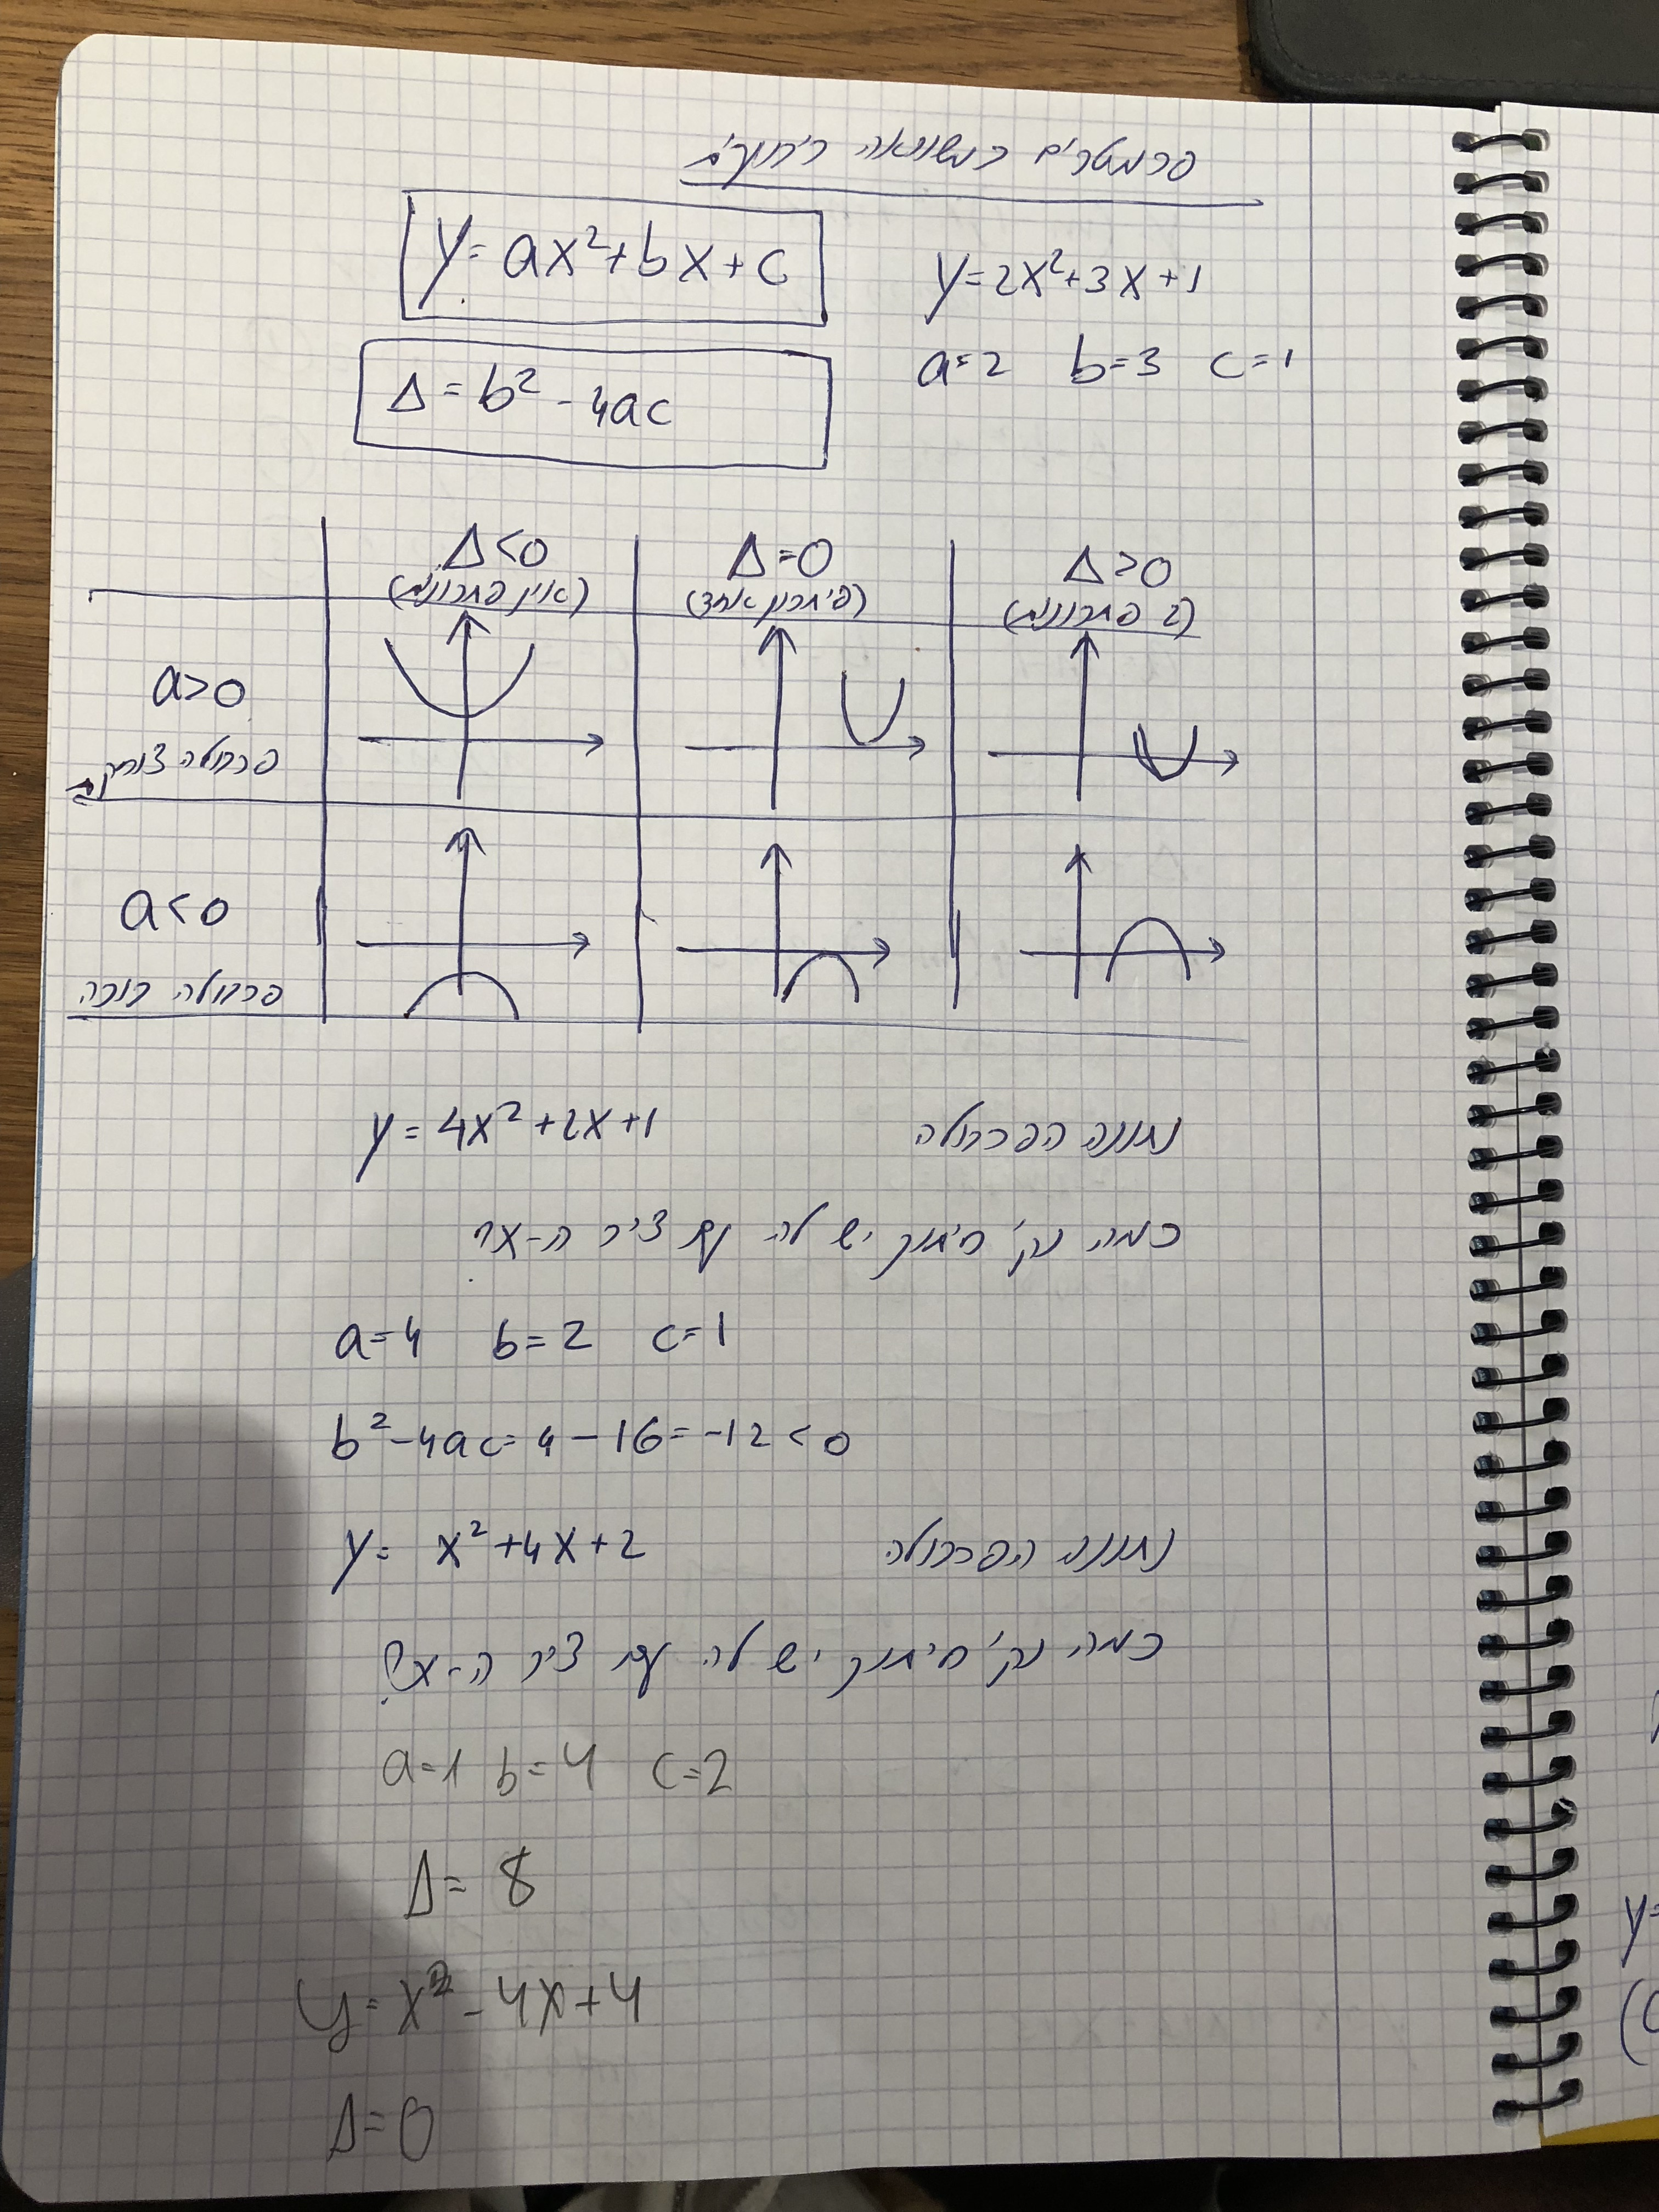 פרמטרים במשוואה ריבועית
y=ax²+bx+c
y=2x²+3x+1
a=2 b=3 c=1
Δ=b²-4ac
Δ<0 Δ=0 Δ>0
(אין פתרונות) (פיתרון אחד) (2 פתרונות)
a>0
פרבולה צוחקת
a<0
פרבולה בוכה
נתונה הפרבולה y=4x²+2x+1
כמה נק' חיתוך יש לה עם ציר ה-x?
a=4 b=2 c=1
b²-4ac=4-16=-12<0
נתונה הפרבולה y=x²+4x+2
כמה נק' חיתוך יש לה עם ציר ה-x?
a=1 b=4 c=2
Δ=8
y=x²-4x+4
Δ=0
y=